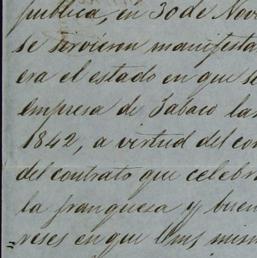 publica, en 30 de Nov
se sirvieron manifesta
era el estado en que se
empresa de Tabaco la
1842, a virtud del con
del contrato que celebr
la franqueza y buen
reses en que Vms mism